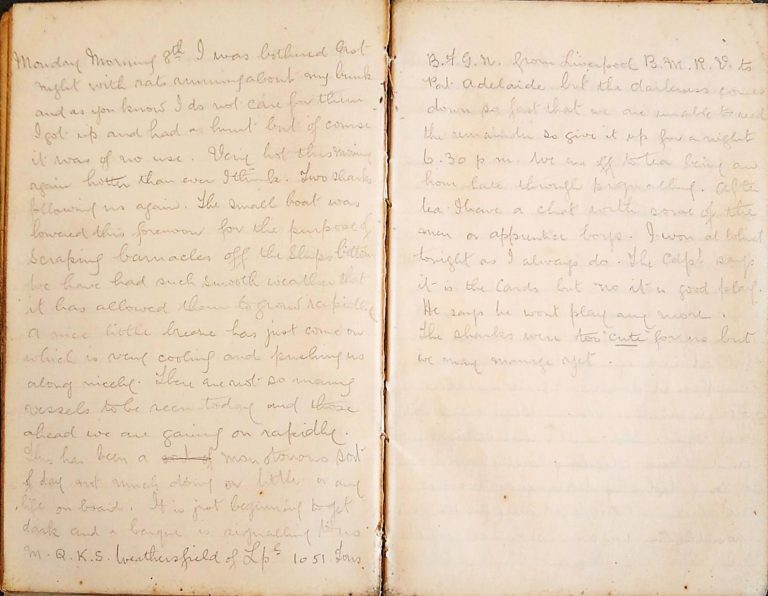 Monday Morning 8th I was bothered last
night with rats running about my bunk
and as you know I do not care for them
I got up and had a hunt but of course
it was of no use. Very hot this morning
again hotter than ever I think. Two sharks
following us again. The small boat was
lowered this forenoon for the purpose of
scraping barnacles off the Ships bottom
We have had such smooth weather that
it has allowed them to grow rapidly
A nice little breeze has just come on
which is very cooling and pushing us
along nicely. There are not so many
vessels to be seen today and those
ahead we are gaining on rapidly.
This has been a sort of monotonous sort
of day not much doing or little or any
life on board. It is just beginning to get
dark and a barque is signalling to us
M.Q.K.S. Weathersfield of Lpl 1051 Tons
B.F.G.N. from Liverpool B.M.R.V. to
Port Adelaide but the darkness comes
down so fast that we are unable to read
the remainder so give it up for a night
6.30 p m. We are off to tea being an
hour late through signalling. After
tea I have a chat with some of the
men or apprentice boys. I won at whist
tonight as I always do. The Capt. says
it is the Cards but no it is good play.
He says he wont play any more.
The sharks were too cute for us but
we may manage yet.